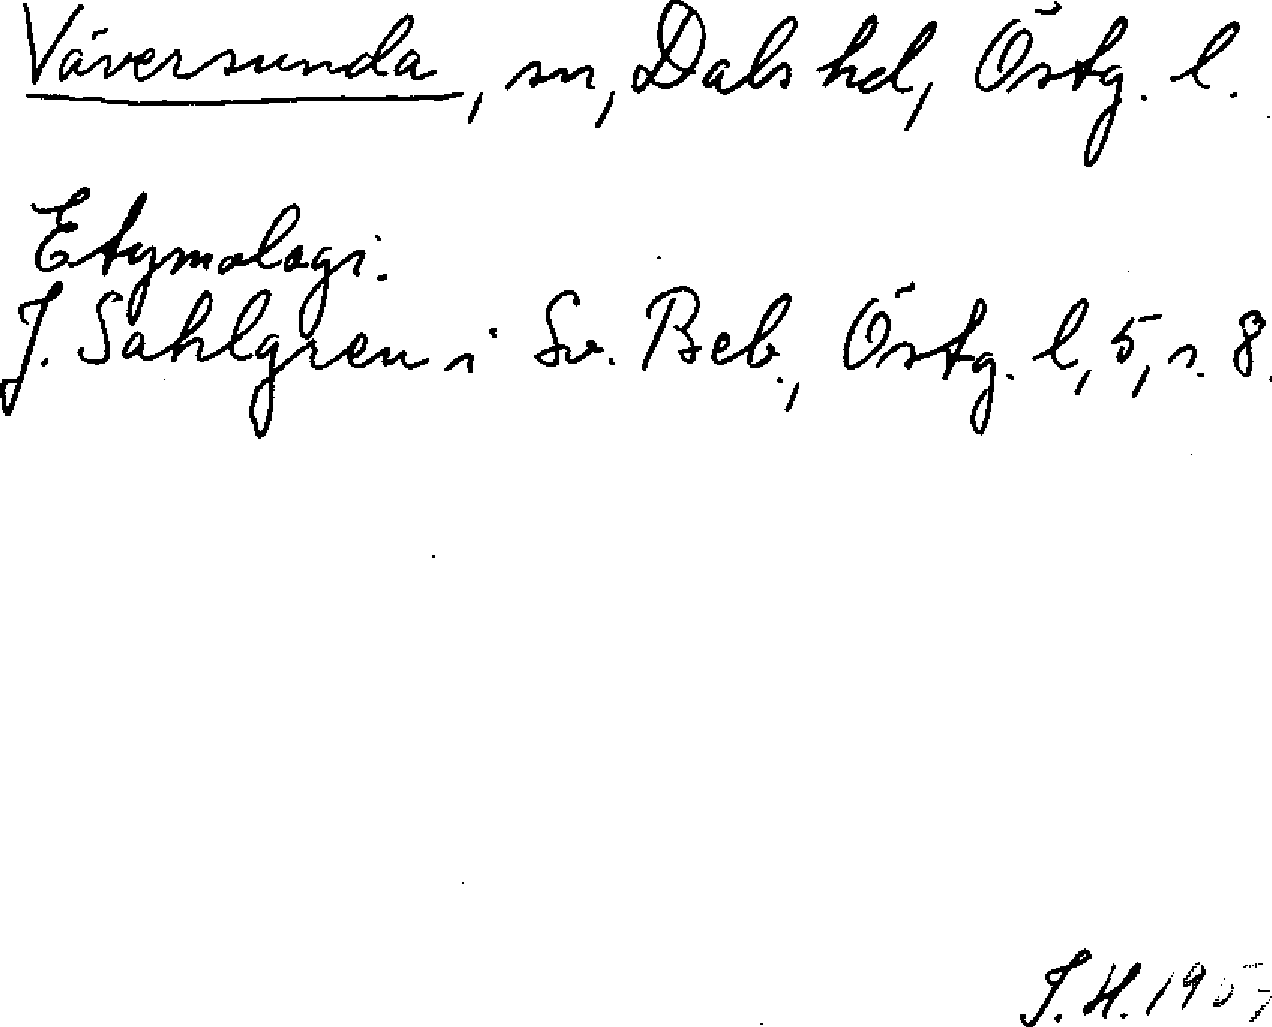 Väversunda, sn, Dals hd, Östg. l.
Etymologi.
J. Sahlgren i Sv. Beb., Östg. l, 5, s. 8.
J. H. 1957